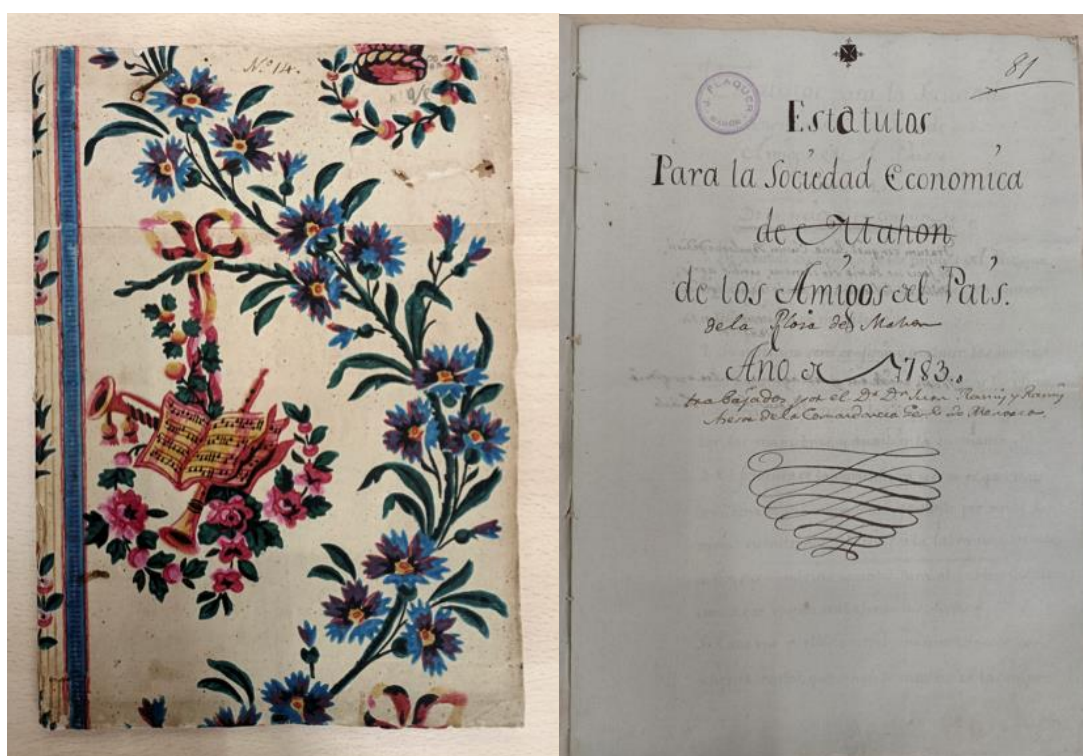 Nº 14.
81
J. FLAQUER
MAHON
Estatutos
Para la Sociedad Economica
de Mahon
de los Amigos del País.
de la de Mahon
Año de 1783.
trabajados por el Dr. Dn. Juan Ramis y Ramis
de la Comandancia de Menorca